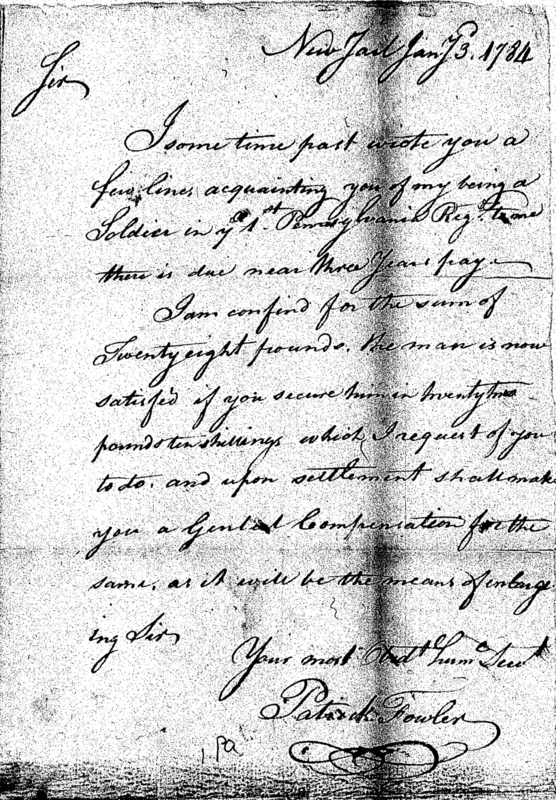 New Jail Jany 3. 1784
Sir
I some time past wrote you a
few lines acquainting you of my being a
Soldier in ye 1st Pennsylvania Regt. to me
there is due near three Years pay
I am confind for the sum of
Twenty eight pounds. the man is now
satisfd if you secure him in twenty two
pounds ten shillings which I request of you
to do. and upon settlement shall make
you a Genteel Compensation for the
same, as it will be the means of enlarg
ing Sir
Your most Obdt Humе Servt
Patrick Fowler
1 Pa